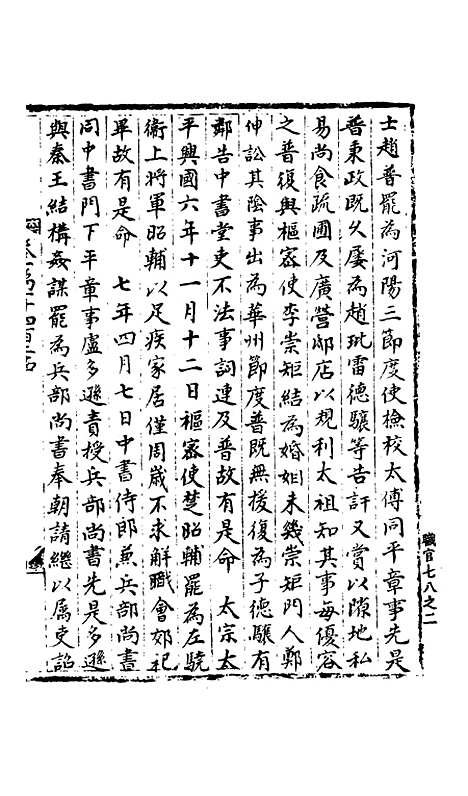 士趙普罷為河陽三節度使檢校太傅同平章事先是
普秉政既久屢為趙玭雷德驤等告訐又嘗以隙地私
易尚食蔬圃及廣營邸店以規利太祖知其事每優容
之普復與樞密使李崇矩結為婚姻未幾崇矩門人鄭
伸訟其陰事出為華州節度普既無援復為子德驤有
鄰告中書堂吏不法事詞連及普故有是命　太宗太
平興國六年十一月十二日樞密使楚昭輔罷為左驍
衛上將軍昭輔以足疾家居僅周歲不求解職會郊祀
畢故有是命　七年四月七日中書侍郎兼兵部尚書
同中書門下平章事盧多遜責授兵部尚書先是多遜
與秦王結構姦謀罷為兵部尚書奉朝請繼以屬吏詔
職官七八之二